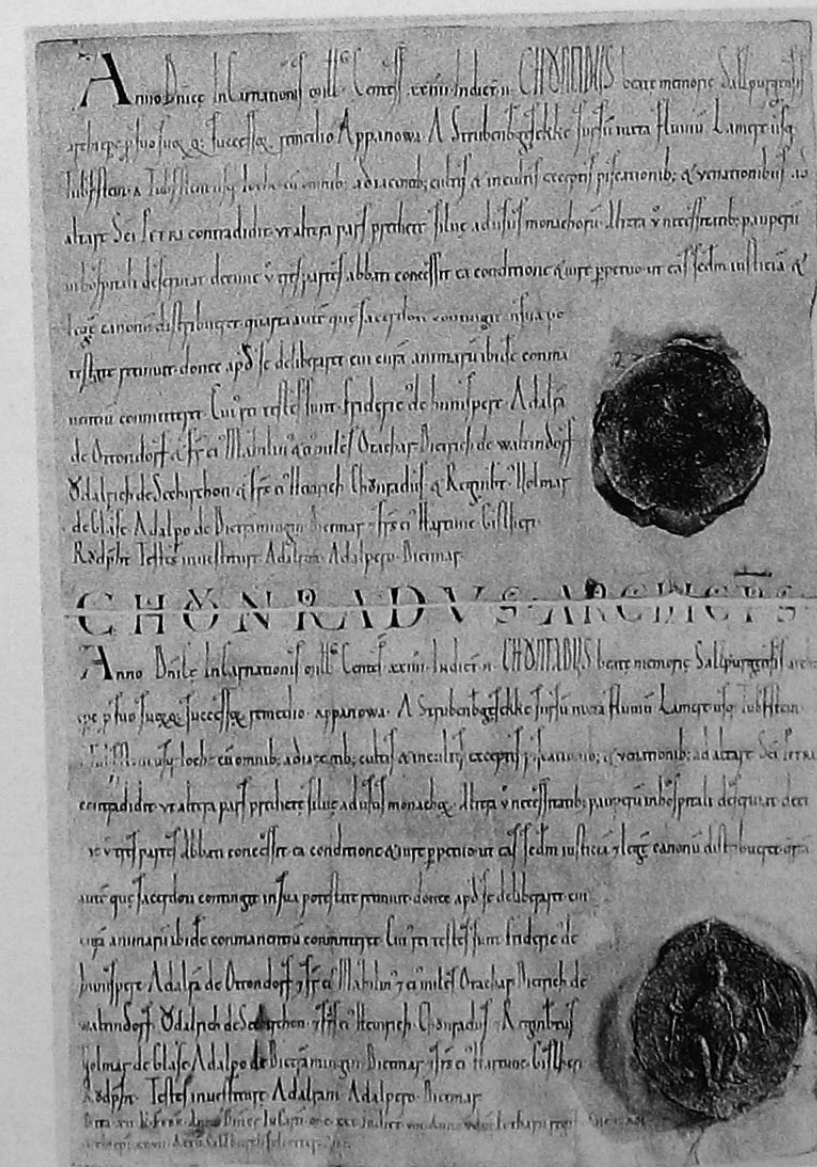 Anno Dnicę Incarnationis mill. Centess. xxiiii. Indict. ii. CHỎNRADUS beate memorię Salzpurgensis
archiepc p suo suoqꝫ successoꝝ remedio Appanowa. A Strubenbgesekke sursū iuxta fluuiū Lamer usqꝫ
cū omnib; adiacentib; cultis & incultis exceptis piscationib; & uenationibus ad
altare Sci PETRI contradidit. ut altera pars predictę siluę ad usus monachorū. Altera ů necessitatib; pauperū
in hospitali deseruiat. decimę ů tres partes abbati concessit ea conditione & iure ppetuo. ut eas scdm iusticiā &
legē canonū distribueret. quartā autē que sacerdoti contingit in sua po
testate retinuit. donec apd se deliberaret cui curā animarū ibidē conma
nentiū conmitteret. Cui rei testes sunt. Frideric de hunisperc. Adalrā
de Ottondorf & frē ei Mahtilin & ei miles Otachar. Dietrich de waltindorf
Ỏdalrich de Sechirchon. & frē ei Heinrich. Chỏnradus & Reginbt. Uolmar
de Glase. Adalpo de Dietrāmingin. Dietmar. frē ei Hartunc. Gislheri.
Rỏdpht. Testes inuestiturę. Adalram. Adalpero. Dietmar.
CHỎNRADVS · ARCHIEPĪS ·
Anno Dnicę Incarnationis mill. Centes. xxiiii. Indict. ii. CHỎNRADUS beatę memorię Salzpurgensis archi
epc p suo suoqꝫ successoꝝ remedio. appanowa. A Strubenbgesekke sursū iuxta fluuiū Lamer usqꝫ
loch. cū omnib; adiacentib; cultis & incultis exceptis piscationib; & uenationib; ad altare Sci PETRI
contradidit. ut altera pars predictę siluę ad usus monachoꝝ. Altera ů necessitatib; pauperū in hospitali deseruiat. deci
mę ů tres partes Abbati concessit ea conditione & iure ppetuo. ut eas scdm iusticiā ⁊ legē canonū distribueret. qrtā
autē que sacerdoti contingit in sua potestate retinuit. donec apd se deliberaret cui
curā animarū ibidē conmanentiū conmitteret. Cui rei testes sunt. Frideric de
hunisperc. Adalrā de Ottondorf ⁊ frē ei Mahtilin ⁊ ei miles Otachar. Dietrich de
waltindorf. Ỏdalrich de Sechirchon. ⁊ frē ei Heinrich. Chỏnradus. Reginbtus
Uolmar de Glase. Adalpo de Dietrāmingin. Dietmar. ⁊ frē ei Hartunc. Gislheri
Rỏdpht. Testes inuestiturę. Adalram. Adalpero. Dietmar.